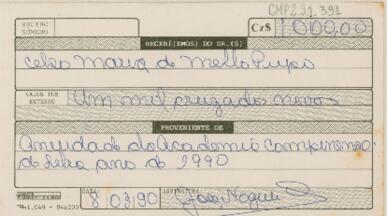 CMP2.91.391
RECIBO NÚMERO
Cz$ 1.000,00
RECEBI(EMOS) DO SR.(S)
Celso Maria de Mello Pupo
VALOR POR EXTENSO
Um mil cruzados novos
PROVENIENTE DE
Anuidade da Academia Campinense
de Letra ano de 1990
DATA: 8/03/90 ASSINATURA